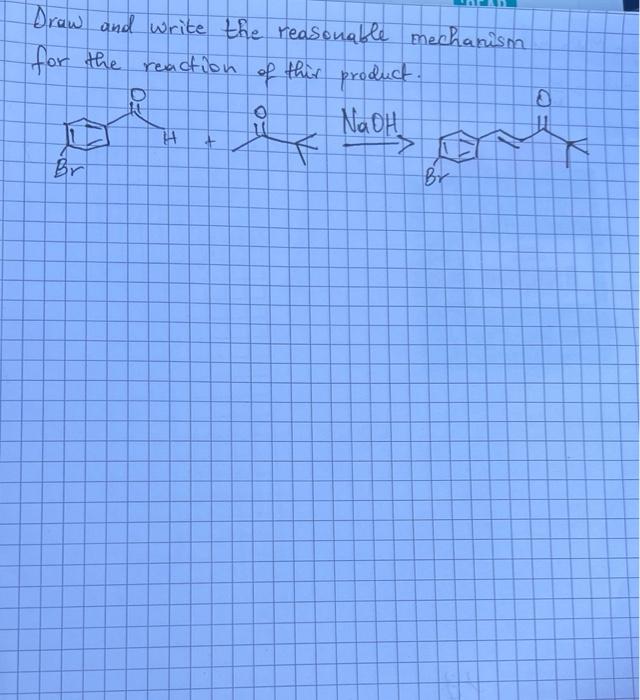 Draw and write the reasonable mechanism
for the reaction of this product.
O O NaOH O
H +
Br Br